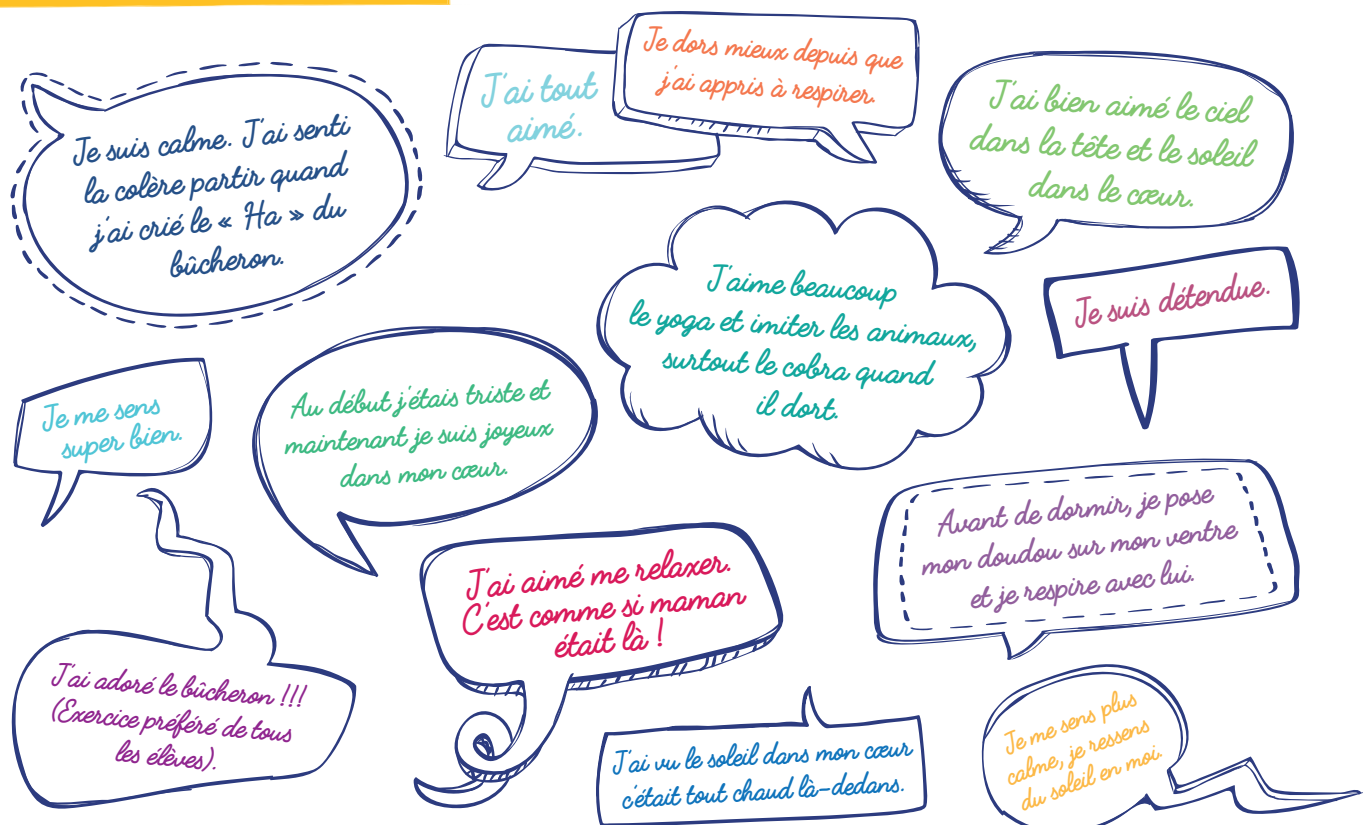 Je suis calme. J'ai senti
la colère partir quand
j'ai crié le « Ha » du
bûcheron.
J'ai tout
aimé.
Je dors mieux depuis que
j'ai appris à respirer.
J'ai bien aimé le ciel
dans la tête et le soleil
dans le cœur.
J'aime beaucoup
le yoga et imiter les animaux,
surtout le cobra quand
il dort.
Je suis détendue.
Je me sens
super bien.
Au début j'étais triste et
maintenant je suis joyeux
dans mon cœur.
Avant de dormir, je pose
mon doudou sur mon ventre
et je respire avec lui.
J'ai aimé me relaxer.
C'est comme si maman
était là !
J'ai adoré le bûcheron !!!
(Exercice préféré de tous
les élèves).
J'ai vu le soleil dans mon cœur
c'était tout chaud là-dedans.
Je me sens plus
calme, je ressens
du soleil en moi.